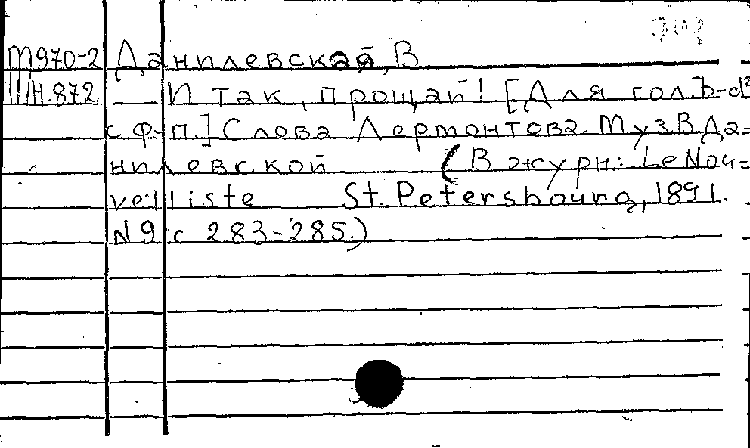 М970-2 Данилевская, В.
III Н.872 И так, прощай! [Для гол.
с ф-п.] Слова Лермонтова. Муз В Да=
нилевской (В журн: Le Nou=
velliste St. Petersbourg, 1891.
N 9 с 283-285.)